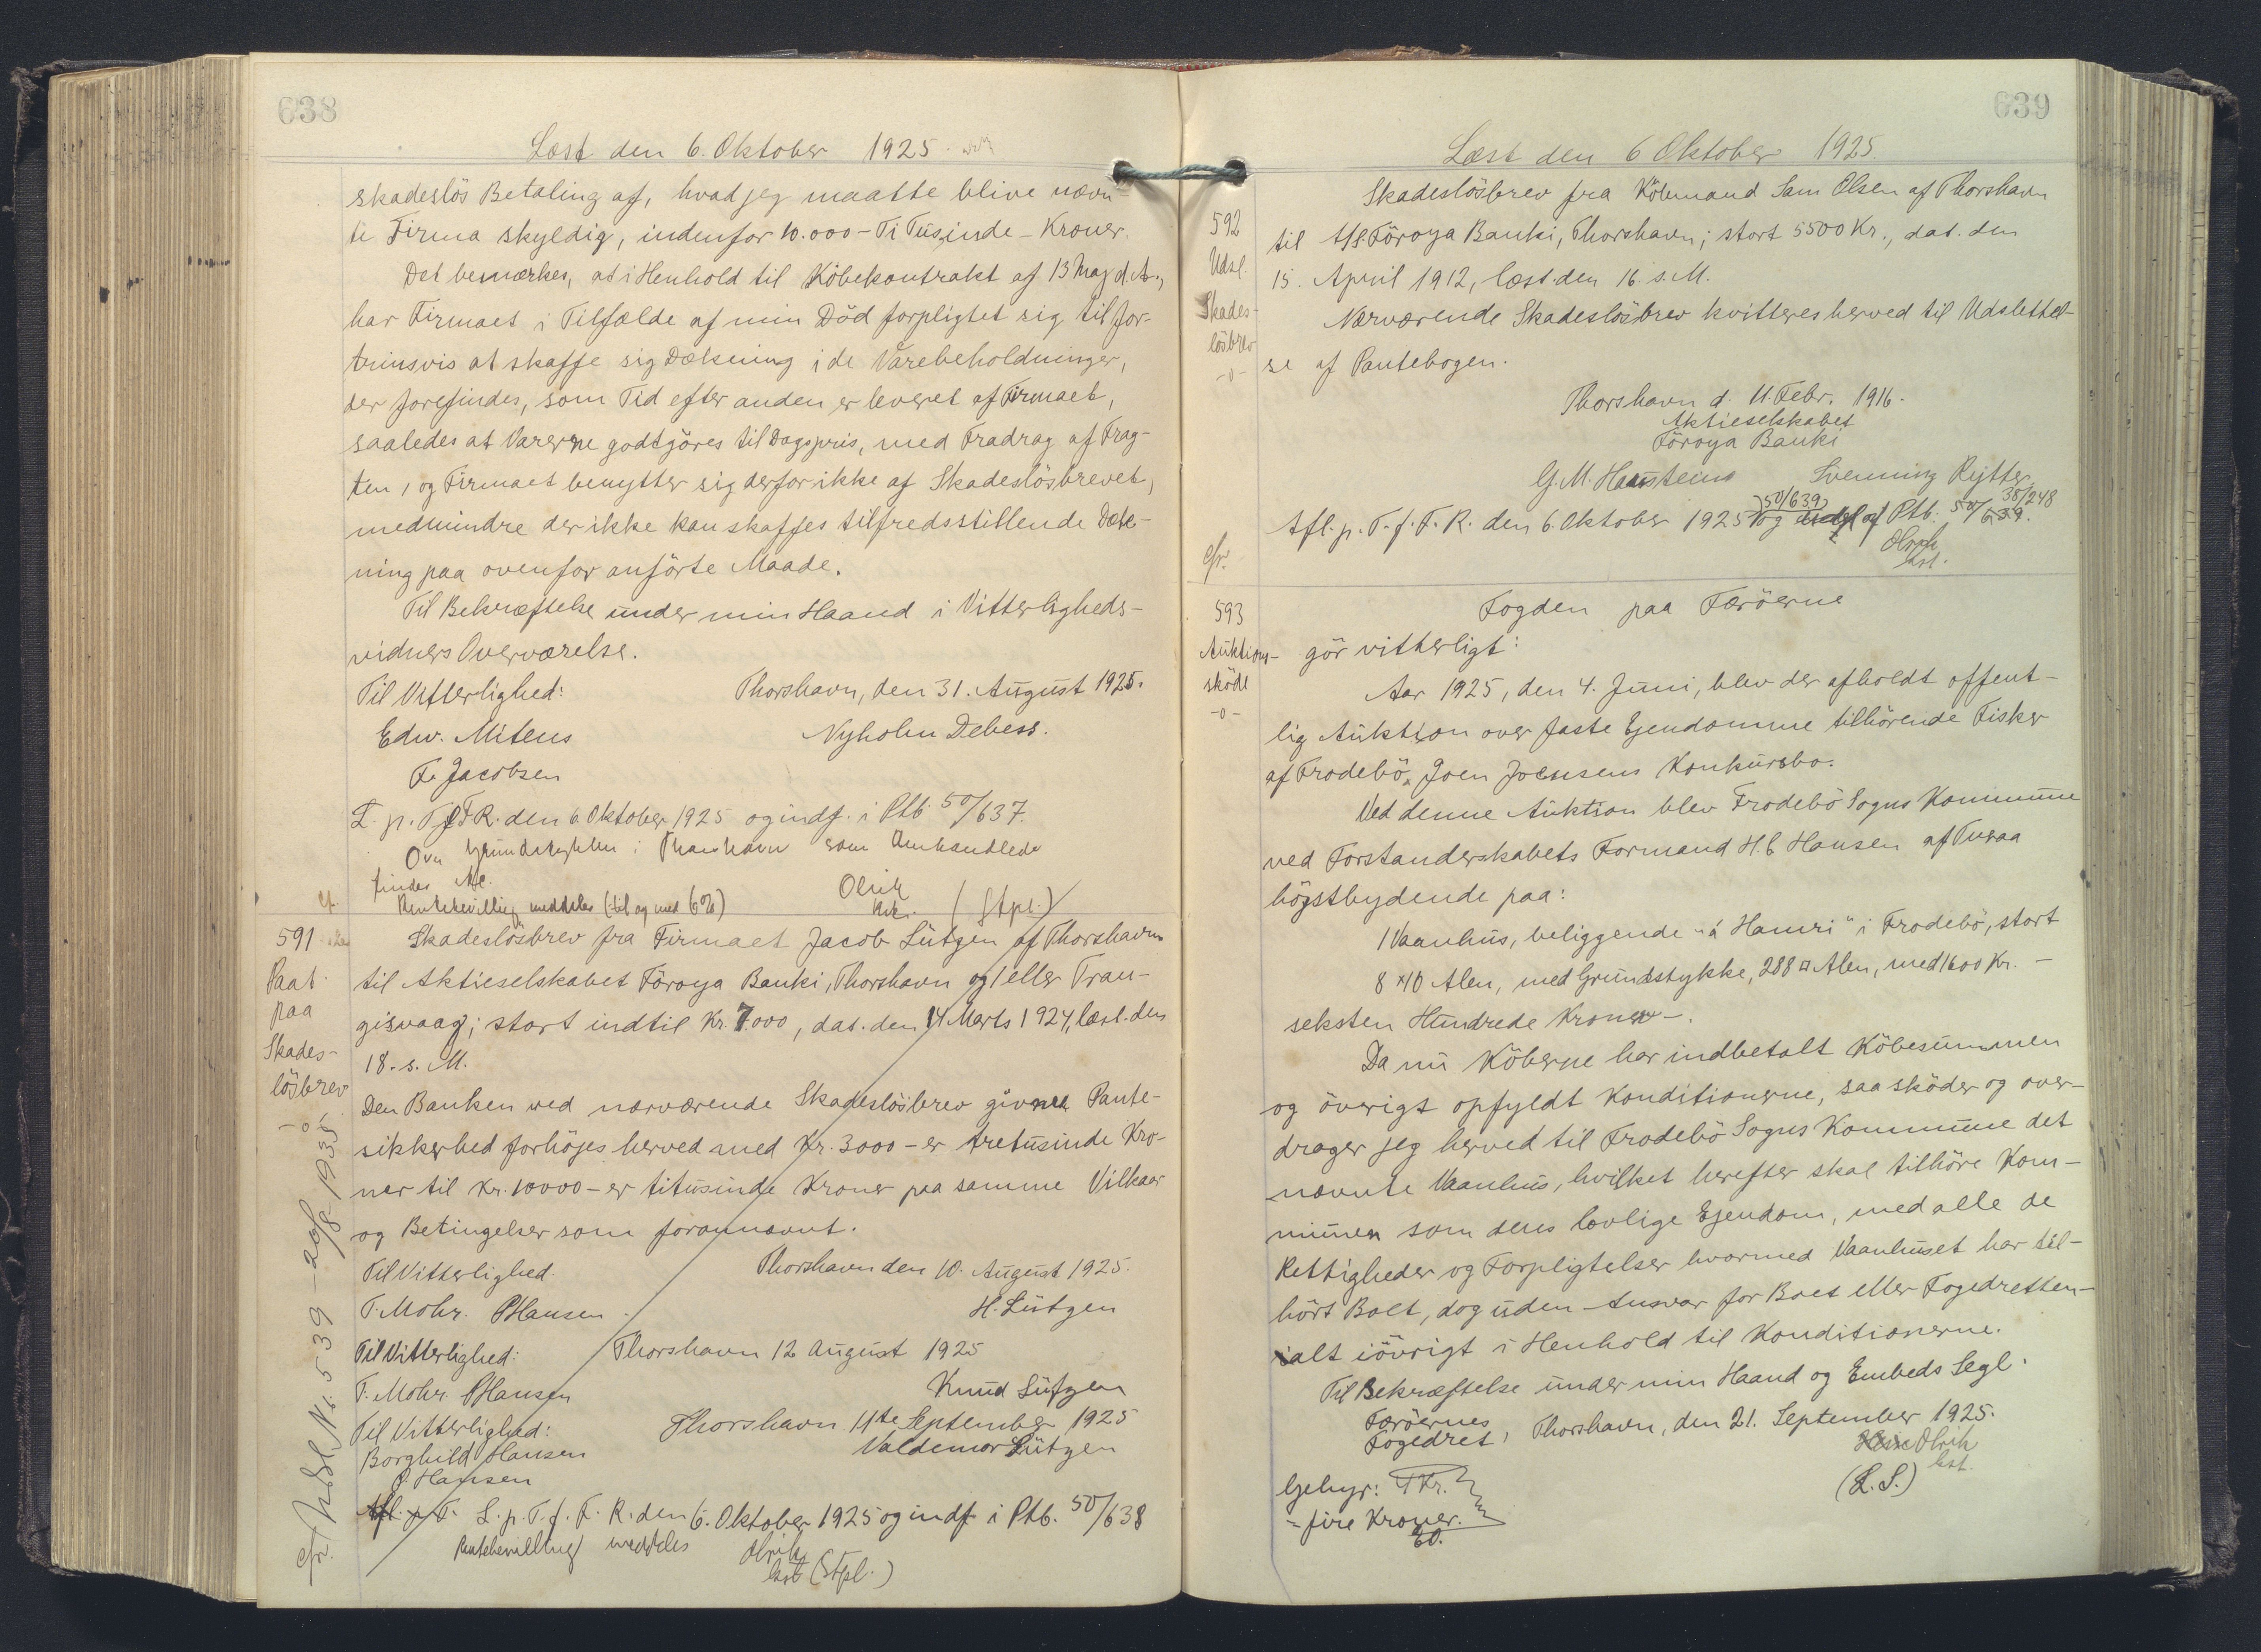 638
Læst den 6. Oktober 1925.
skadeslös Betaling af, hvad jeg maatte blive nævn-
te Firma skyldig, indenfor 10.000 - Ti Tusinde - Kroner.
Det bemærkes, at i Henhold til Köbekontrakt af 13 Maj d. A.,
har Firmaet i Tilfælde af min Död forpligtet sig til for-
trinsvis at skaffe sig Dækning i de Varebeholdninger,
der forefindes, som Tid efter anden er leveret af Firmaet,
saaledes at Varerne godtgöres til Dagspris, med Fradrag af Frag-
ten, og Firmaet benytter sig derfor ikke af Skadeslösbrevet,
medmindre der ikke kan skaffes tilfredsstillende Dæk-
ning paa ovenfor anförte Maade.
Til Bekræftelse under min Haand i Vitterligheds-
vidners Overværelse.
Til Vitterlighed: Thorshavn, den 31. August 1925.
Edw. Mitens Nyholm Debess.
F. Jacobsen
L. p. T. f. F. R. den 6 Oktober 1925 og indf. i Ptb. 50/637.
Ovn Grundstykker i Thorshavn som Omhandlede
findes
Rentebevilling meddeles (til og med 6%) Olrik
kst. (Stpl.)
cf.
591
Paat.
paa
Skades-
lösbrev
-o-
Skadeslösbrev fra Firmaet Jacob Lützen af Thorshavn
til Aktieselskabet Föroya Banki, Thorshavn og/eller Tran-
gisvaag; stort indtil Kr. 7.000, dat. den 14 Marts 1924, læst den
18. s. M.
Den Banken ved nærværende Skadeslösbrev givne Pante-
sikkerhed forhöjes herved med Kr. 3000 - er tretusinde Kro-
ner til Kr. 10000 - er titusinde Kroner paa samme Vilkaar
og Betingelser som forannævnt.
Til Vitterlighed. Thorshavn den 10. August 1925.
T. Mohr. P Hansen H. Lützen
Til Vitterlighed: Thorshavn 12 August 1925
T. Mohr. P Hansen Knud Lützen
Til Vitterlighed: Thorshavn 11te September 1925
Borghild Hansen Valdemar Lützen
P. Hansen
Afl. p. T. L. p. T. f. F. R. den 6. Oktober 1925 og indf. i Ptb. 50/638
Rentebevilling meddeles Olrik
kst (Stpl.)
cfr. Udsl. Nr. 539 - 20/8 1935
639
Læst den 6 Oktober 1925.
592
Udsl.
Skades-
lösbrev
-o-
Skadeslösbrev fra Köbmand Sam Olsen af Thorshavn
til A/S Föroya Banki, Thorshavn; stort 5500 Kr., dat. den
15. April 1912, læst den 16. s. M.
Nærværende Skadeslösbrev kvitteres herved til Udslettel-
se af Pantebogen.
Thorshavn d. 11. Febr. 1916.
Aktieselskabet
Föroya Banki
G. M. Haarsteins Svenning Rejtter
Afl. p. T. f. F. R. den 6. Oktober 1925 50/639 og udsl af Ptb. 50/639. 38/248
Olrik
kst.
cfr.
593
Auktions-
sköde
-o-
Fogden paa Færöerne
gör vitterligt:
Aar 1925, den 4. Juni, blev der afholdt offent-
lig Auktion over faste Ejendomme tilhörende Fisker
af Frodebö, Joen Joensens Konkursbo.
Ved denne Auktion blev Frodebö Sogns Kommune
ved Forstanderskabets Formand H. C Hansen af Tvraa
högstbydende paa:
1 Vaanhus, beliggende "á Hamri" i Frodebö, stort
8 x 10 Alen, med Grundstykke, 288 □ Alen, med 1600 Kr. -
seksten Hundrede Kroner -.
Da nu Köberne har indbetalt Köbesummen
og övrigt opfyldt Konditionerne, saa sköder og over-
drager jeg herved til Frodebö Sogns Kommune det
nævnte Vaanhus, hvilket herefter skal tilhöre Kom-
munen som dens lovlige Ejendom, med alle de
Rettigheder og Forpligtelser hvormed Vaanhuset har til-
hört Boet, dog uden Ansvar for Boet eller Fogedretten -
alt iövrigt i Henhold til Konditionerne.
Til Bekræftelse under min Haand og Embeds Segl.
Færöernes
Fogedret, Thorshavn, den 21. September 1925.
Olrik
kst.
(L. S.)
Gebyr: 4 Kr.
= fire Kroner.
EO.